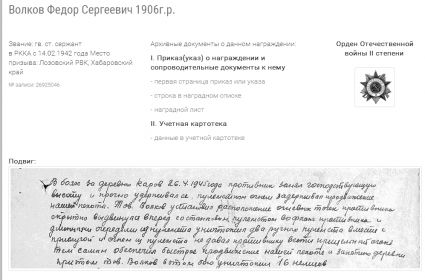 Волков Федор Сергеевич 1906г.р.
Звание: гв. ст. сержант
в РККА с 14.02.1942 года Место
призыва: Лозовский РВК, Хабаровский
край
№ записи: 26925046
Архивные документы о данном награждении:
I. Приказ(указ) о награждении и
сопроводительные документы к нему
- первая страница приказ или указа
- строка в наградном списке
- наградной лист
II. Учетная картотека
- данные в учетной картотеке
Орден Отечественной
войны II степени
Подвиг:
В боях за деревню Каров 26.4.1945 года противник занял господствующую
высоту и прочно удерживался, пулеметным огнем задерживал продвижение
нашей пехоты. Тов. Волков установил расположение огневых точек противника
скрытно выдвинулся вперед со станковым пулеметом во фланг противника и
длинными очередями из пулемета уничтожил два ручных пулемета вместе с
прислугой и огнем из пулемета не давал противнику вести прицельный огонь
Тем самым обеспечил быстрое продвижение нашей пехоты и занятию деревни
при этом тов. Волков в этом бою уничтожил 16 немцев